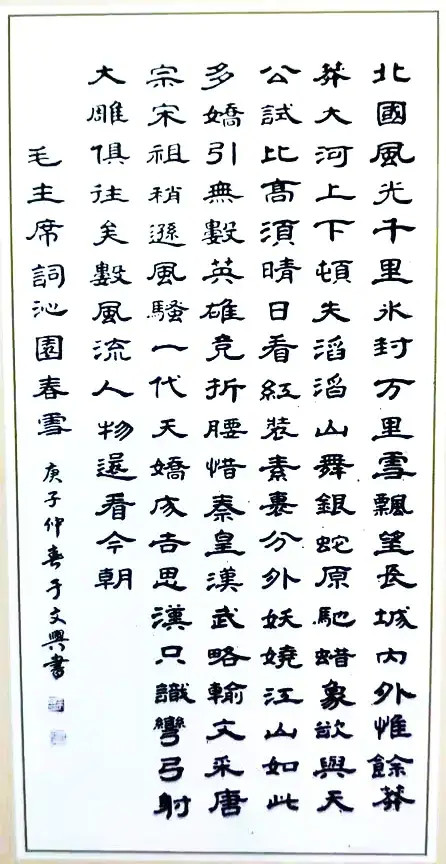 北國風光千里氷封万里雪飄望長城内外惟餘莽
莽大河上下頓失滔滔山舞銀蛇原馳蜡象欲與天
公試比高須晴日看紅装素裹分外妖嬈江山如此
多嬌引無數英雄竞折腰惜秦皇漢武略輸文采唐
宗宋祖稍遜風騷一代天嬌成吉思漢只識彎弓射
大雕俱往矣數風流人物還看今朝
毛主席詞沁園春雪 庚子仲春于文興書